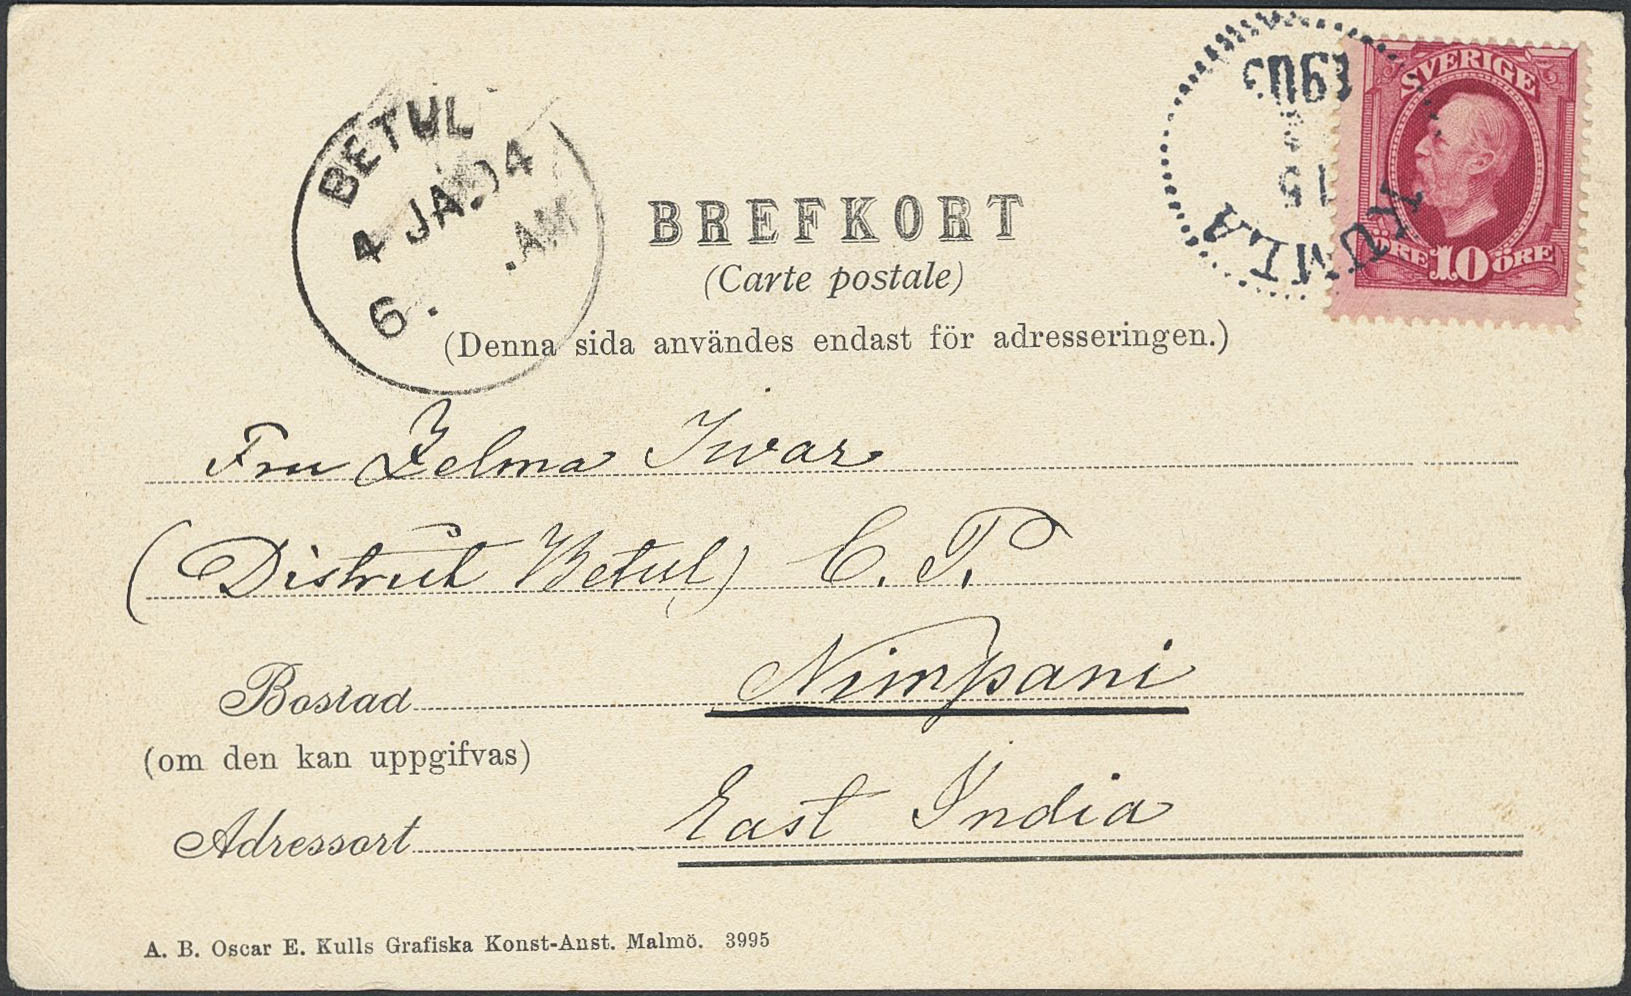 BETUL
4 JA 04
6. .AM
KUMLA
15
SVERIGE
ÖRE 10 ÖRE
BREFKORT
(Carte postale)
(Denna sida användes endast för adresseringen.)
Fru Zelma Iwar
(District Betul) C. P.
Bostad Nimpani
(om den kan uppgifvas)
Adressort East India
A. B. Oscar E. Kulls Grafiska Konst-Anst. Malmö. 3995